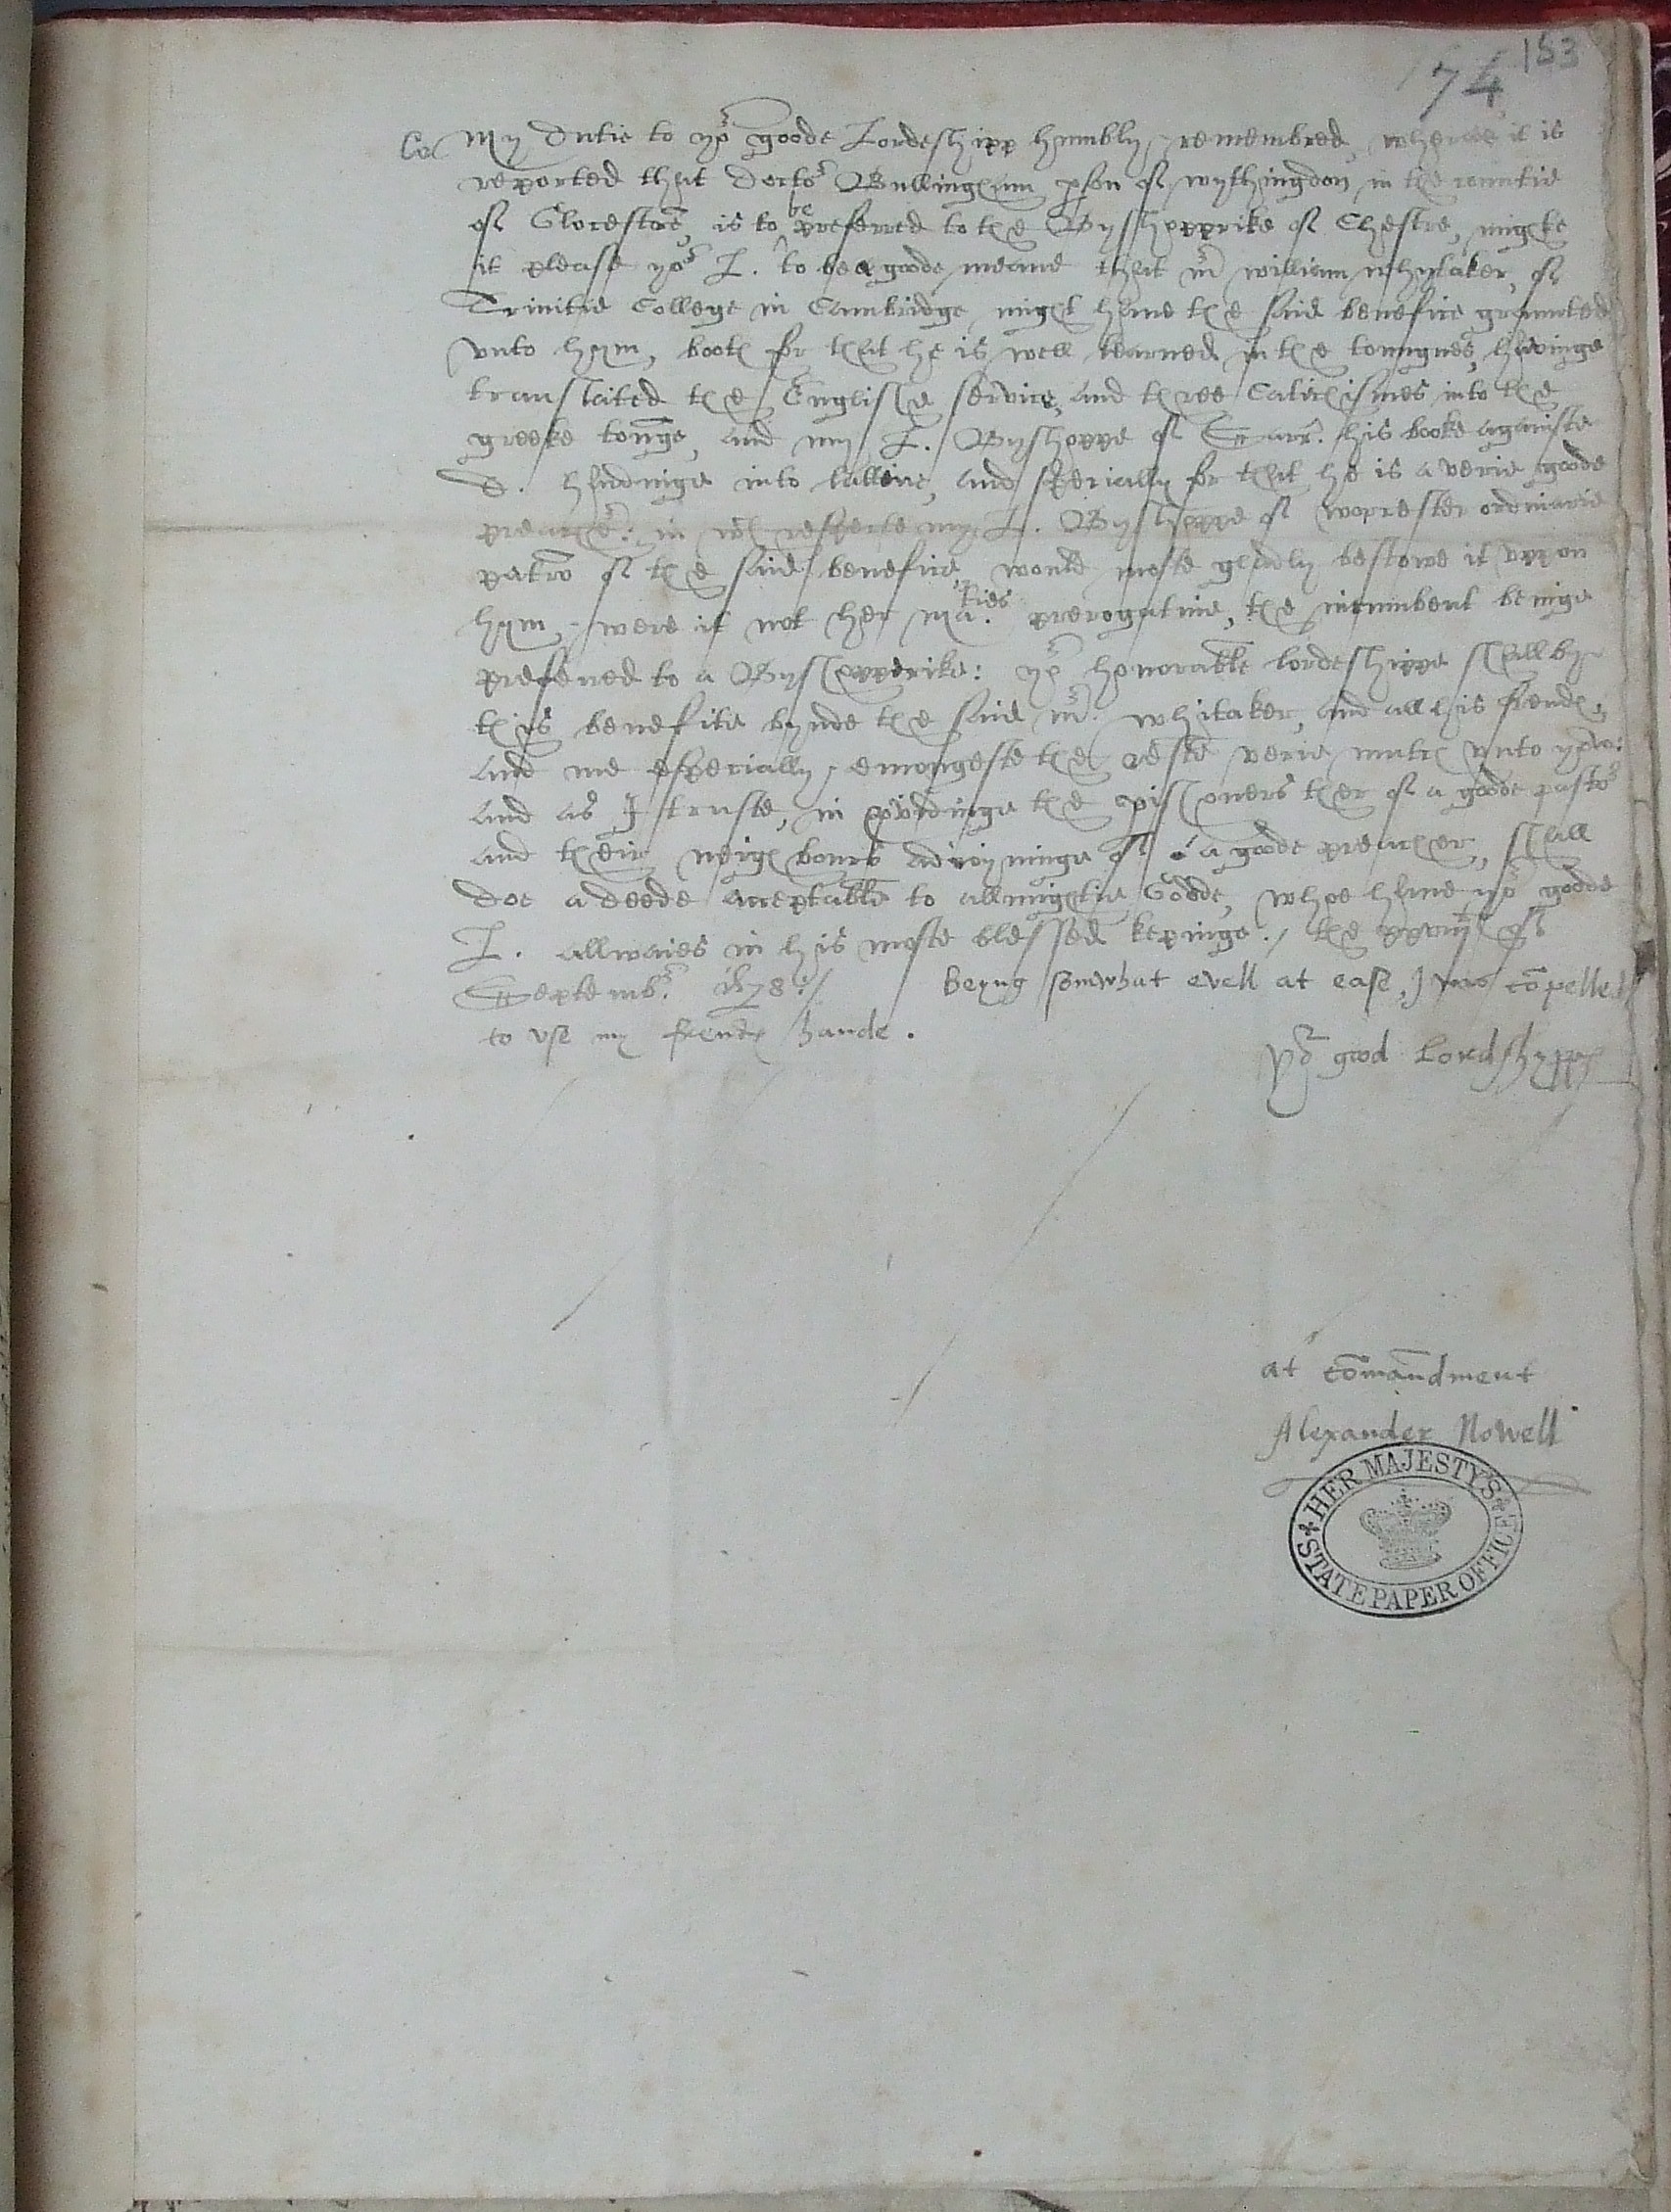 74 153
My dutie to yor goode Lordeshipp humbly remembred, wheras it is
reported that doctor Bullingham pson of wythingdon in the countie
of Glocestre, is to be preferred to the Bysshopprike of Chestre, mighte
it please yor L. to be a goode meane that mr william whytaker, of
Trinitie College in Cambridge might have the said benefice graunted
vnto hym, booth for that he is well learned in the toungues, havinge
translated the Englishe service, and three Catichismes into the
greeke tonge, and my L. Bysshoppe of Sarr. his booke againste
d. hardinge into lattine, and specially for that he is a verie goode
preacher: in wch respecte my L. Bysshoppe of worcester ordinarie
patron of the said benefice, would moste gladly bestowe it vppon
hym, were it not her Ma.ties prerogative, the incumbent beinge
preferred to a Bysshopperike: yor honorable lordeshippe shall by
this benefite bynde the said mr. whitaker, and all his frendes,
and me especially, emongeste the reste verie much vnto yow:
and as I truste, in providinge the pishoners ther of a goode pastor
and their neighbours adioyninge of a goode preacher, shall
doe a deede acceptable to allmightie Godde, whoe have yor goode
L. allwaies in his moste blessed kepinge./ the of
Septembr. 1578:/ Beyng somwhat evell at ease, I was compelled
to vse my frendes hande.
Yor good Lordshypps
at comandment
Alexander Nowell
HER MAJESTY'S
STATE PAPER OFFICE